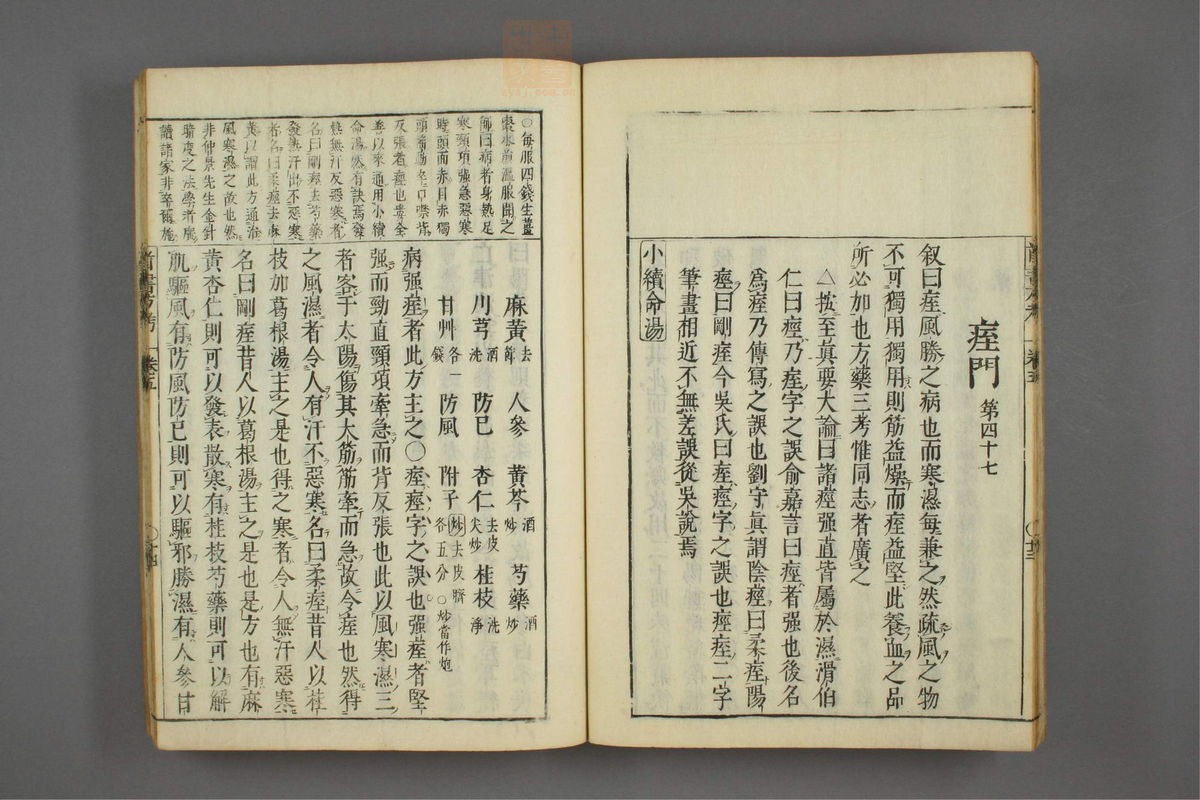 痓門 第四十七
叙曰痓風勝之病也而寒濕每兼之然疏風之物
不可獨用獨用則筋益燥而痓益堅此養血之品
所必加也方藥三考惟同志者廣之
△按至真要大論曰諸痙强直皆屬於濕滑伯
仁曰痙乃痓字之誤俞嘉言曰痙者强也後名
爲痓乃傳寫之誤也劉守真謂陰痙曰柔痓陽
痙曰剛痓今吳氏曰痓痙字之誤也痙痓二字
筆畫相近不無差誤從吳說焉
小續命湯
○每服四錢生薑
棗水煎溫服聞之
師曰病者身熱足
寒頸項強急惡寒
時頭面赤目赤獨
頭動搖卒口噤背
反張者痙也
善以來通用小續
命湯然有訣焉發
熱無汗反惡寒者
名曰剛痓去芍藥
發熱汗出不惡寒
者名曰柔痙去麻
黄以謂此方通治
風寒濕之故也然
非仲景先生金針
暗度之法學者
讀諸家非
麻黄去節 人參 黄芩酒炒 芍藥酒炒
川芎酒洗 防巳 杏仁去皮尖炒 桂枝洗淨
甘艸各一錢 防風 附子炒去皮臍各五分 ○炒當作炮
病强痓者此方主之○痓痙字之誤也强痓者堅
强而勁直頸項牽急而背反張也此以風寒濕三
者客于太陽傷其大筋筋牽而急故令痓也然得
之風濕者令人有汗不惡寒名曰柔痓昔人以桂
枝加葛根湯主之是也得之寒者令人無汗惡寒
名曰剛痓昔人以葛根湯主之是也是方也有麻
黄杏仁則可以發表散寒有桂枝芍藥則可以解
肌驅風有防風防巳則可以驅邪勝濕有人參甘